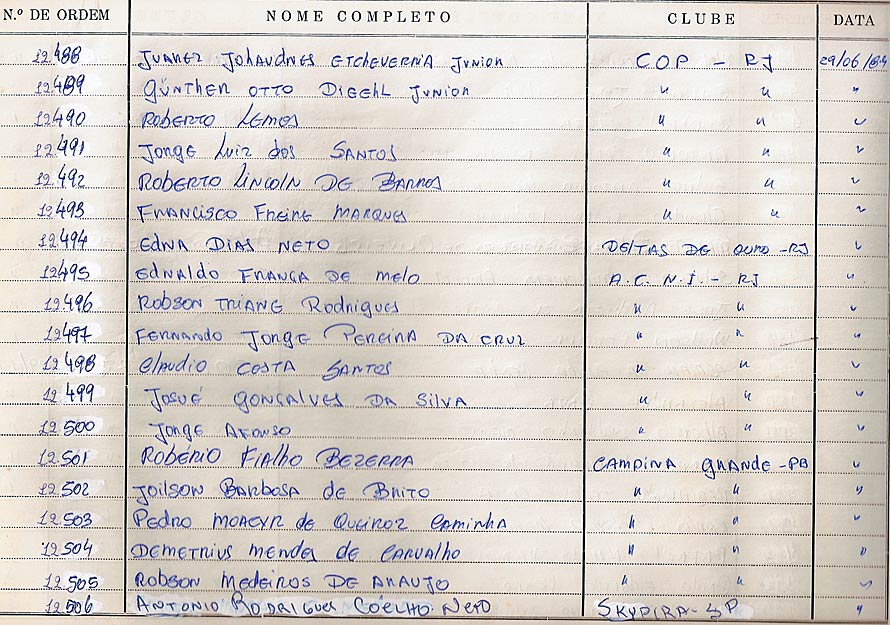 N.º DE ORDEM NOME COMPLETO CLUBE DATA
12488 Juarez Johaudnes Etcheverria Junior COP - RJ 29/06/84
12489 Günther Otto Dieghl Junior " " "
12490 Roberto Lemos " " "
12491 Jorge Luiz dos Santos " " "
12492 Roberto Lincoln de Barros " " "
12493 Francisco Freire Marques " " "
12494 Edna Dias Neto Deltas de Ouro - RJ "
12495 Ednaldo França de Melo A.C.N.I. - RJ "
12496 Robson Triane Rodrigues " " "
12497 Fernando Jorge Pereira da Cruz " " "
12498 Claudio Costa Santos " " "
12499 Josué Gonsalves da Silva " " "
12500 Jorge Afonso " " "
12501 Robério Fialho Bezerra Campina Grande - PB "
12502 Joilson Barbosa de Brito " " "
12503 Pedro Moacyr de Queiroz Caminha " " "
12504 Demetrius Mendes de Carvalho " " "
12505 Robson Medeiros de Araujo " " "
12506 Antonio Rodrigues Coelho Neto Skydira - SP "